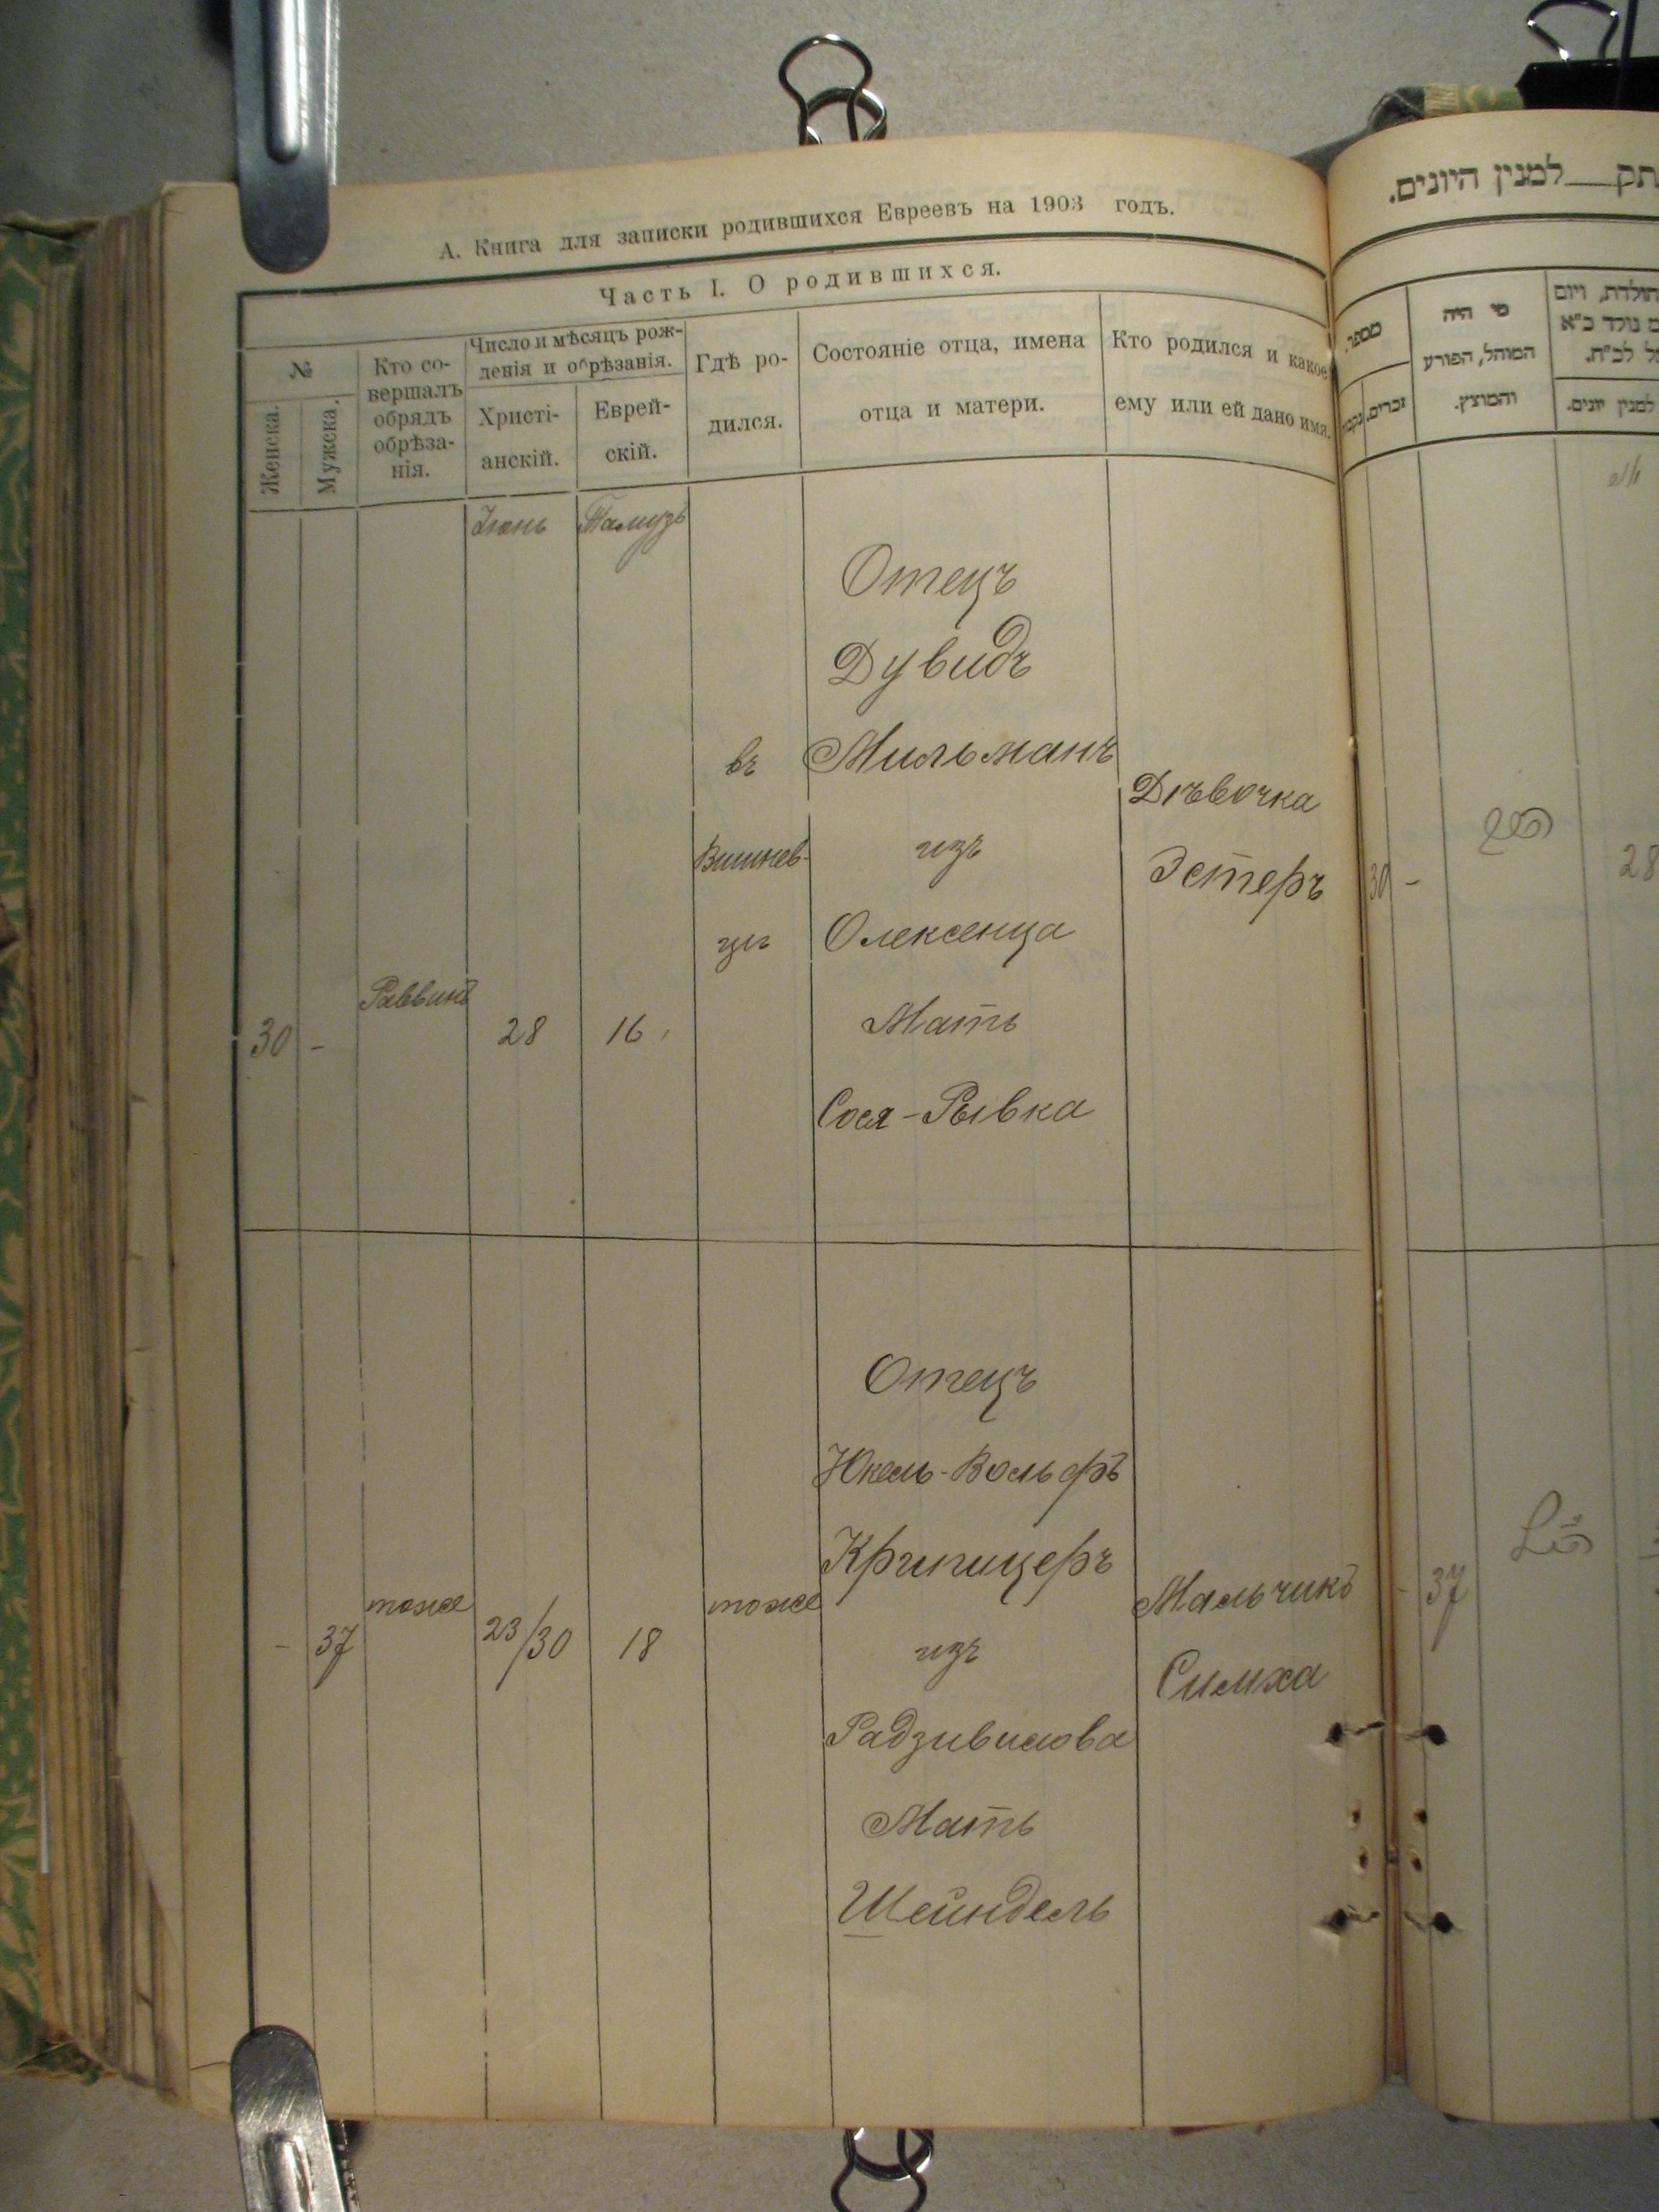 А. Книга для записки родившихся Евреевъ на 1903 годъ.
Часть I. О родившихся.
№
Женска.
Мужска.
Кто со-
вершалъ
обрядъ
обрѣза-
нія.
Число и мѣсяцъ рож-
денія и обрѣзанія.
Христі-
анскій.
Еврей-
скій.
Гдѣ ро-
дился.
Состояніе отца, имена
отца и матери.
Кто родился и какое
ему или ей дано имя.
Іюнь
Тамузъ
30
-
Раввинъ
28
16
въ
Вишнев-
цѣ
Отецъ
Дувидъ
Мильманъ
изъ
Олексенца
Мать
Сося-Рывка
Дѣвочка
Эстеръ
-
37
тоже
23/30
18
тоже
Отецъ
Юкель-Вольфъ
Криницеръ
изъ
Радзивилова
Мать
Шейндель
Мальчикъ
Симха
תק___למנין היונים.
מספר,
נקבות
זכרים.
מי היה
המוהל, הפורע
והמוצץ.
הולדת, ויום
נולד כ"א
לכ"ח.
למנין יונים.
30
-
28
-
37